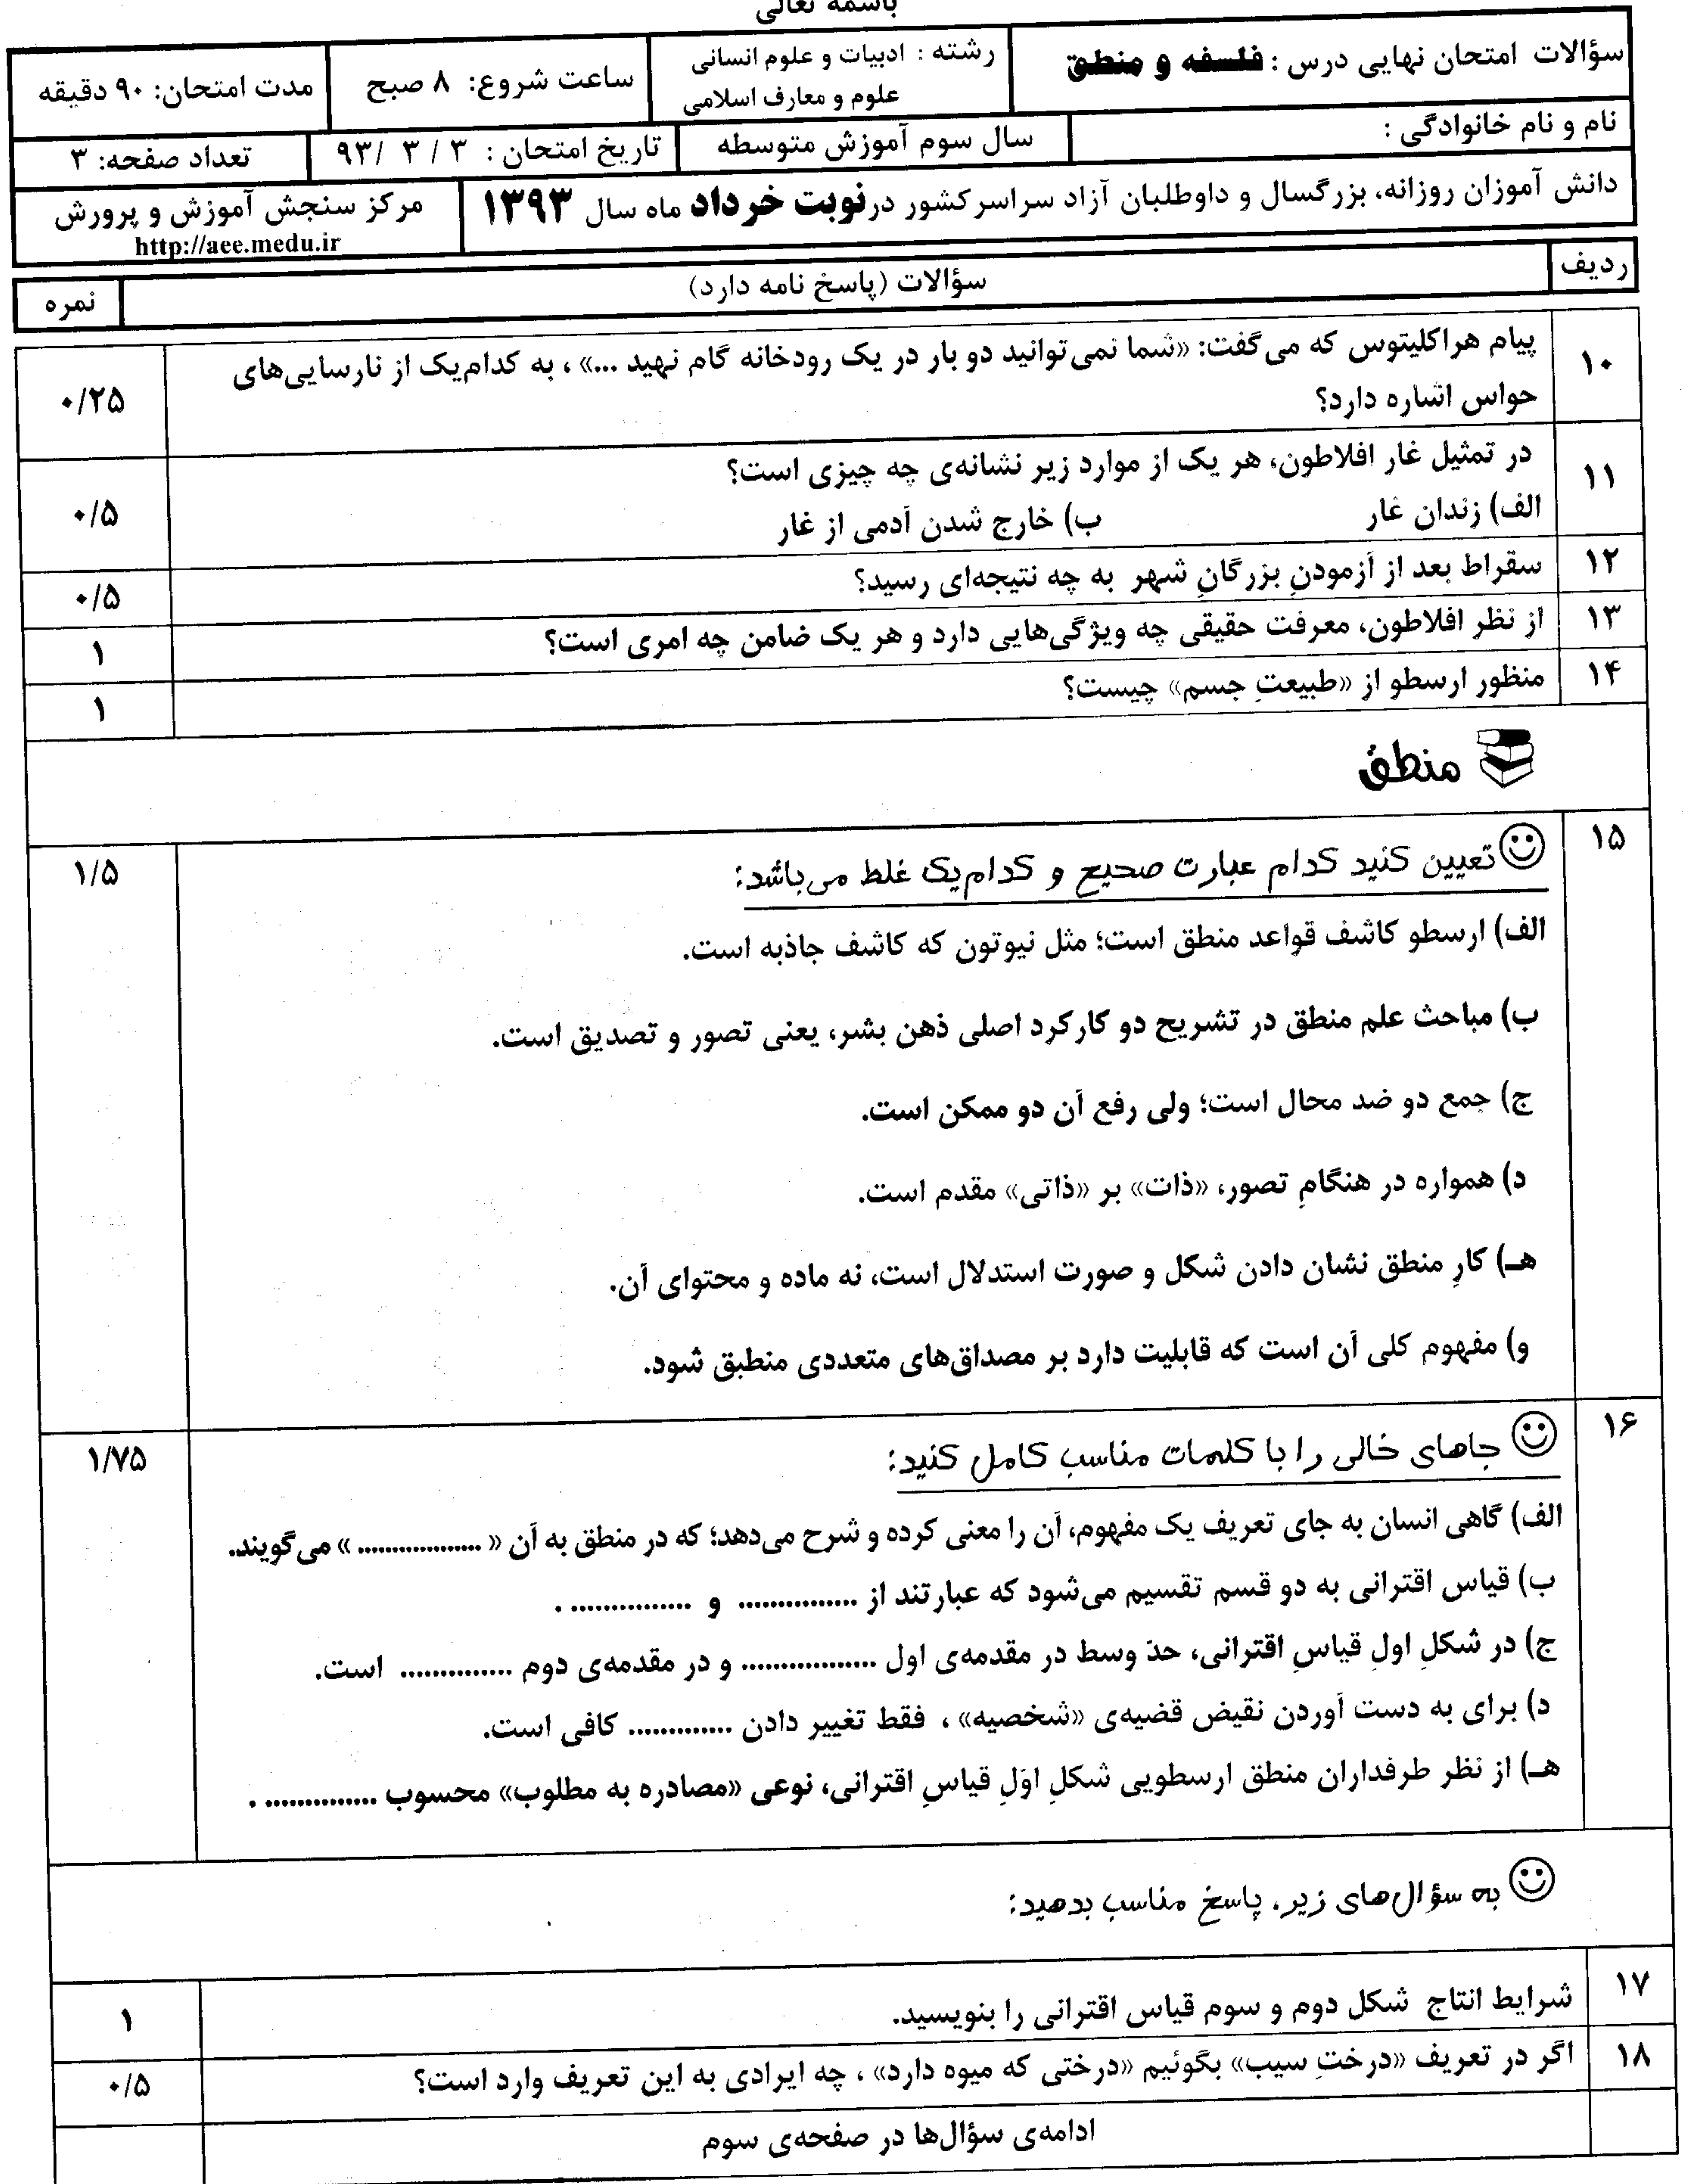 باسمه تعالی
سؤالات امتحان نهایی درس : فلسفه و منطق
رشته : ادبیات و علوم انسانی
علوم و معارف اسلامی
ساعت شروع: ۸ صبح
مدت امتحان: ۹۰ دقیقه
نام و نام خانوادگی :
سال سوم آموزش متوسطه
تاریخ امتحان : ۳ / ۳ /۹۳
تعداد صفحه: ۳
دانش آموزان روزانه، بزرگسال و داوطلبان آزاد سراسرکشور درنوبت خرداد ماه سال ۱۳۹۳
مرکز سنجش آموزش و پرورش
http://aee.medu.ir
ردیف
سؤالات (پاسخ نامه دارد)
نمره
۱۰
پیام هراکلیتوس که می‌گفت: «شما نمی‌توانید دو بار در یک رودخانه گام نهید ...» ، به کدام‌یک از نارسایی‌های
حواس اشاره دارد؟
۰/۲۵
۱۱
در تمثیل غار افلاطون، هر یک از موارد زیر نشانه‌ی چه چیزی است؟
الف) زندان غار ب) خارج شدن آدمی از غار
۰/۵
۱۲
سقراط بعد از آزمودنِ بزرگانِ شهر به چه نتیجه‌ای رسید؟
۰/۵
۱۳
از نظر افلاطون، معرفت حقیقی چه ویژگی‌هایی دارد و هر یک ضامن چه امری است؟
۱
۱۴
منظور ارسطو از «طبیعتِ جسم» چیست؟
۱
منطق
۱۵
تعیین کنید کدام عبارت صحیح و کدام‌یک غلط می‌باشد:
۱/۵
الف) ارسطو کاشف قواعد منطق است؛ مثل نیوتون که کاشف جاذبه است.
ب) مباحث علم منطق در تشریح دو کارکرد اصلی ذهن بشر، یعنی تصور و تصدیق است.
ج) جمع دو ضد محال است؛ ولی رفع آن دو ممکن است.
د) همواره در هنگامِ تصور، «ذات» بر «ذاتی» مقدم است.
هـ) کارِ منطق نشان دادن شکل و صورت استدلال است، نه ماده و محتوای آن.
و) مفهوم کلی آن است که قابلیت دارد بر مصداق‌های متعددی منطبق شود.
۱۶
جاهای خالی را با کلمات مناسب کامل کنید:
۱/۷۵
الف) گاهی انسان به جای تعریف یک مفهوم، آن را معنی کرده و شرح می‌دهد؛ که در منطق به آن « .................. » می‌گویند.
ب) قیاس اقترانی به دو قسم تقسیم می‌شود که عبارتند از ............... و ............... .
ج) در شکلِ اولِ قیاسِ اقترانی، حدّ وسط در مقدمه‌ی اول ................. و در مقدمه‌ی دوم .............. است.
د) برای به دست آوردن نقیض قضیه‌ی «شخصیه» ، فقط تغییر دادن ............. کافی است.
هـ) از نظر طرفداران منطق ارسطویی شکلِ اوّلِ قیاسِ اقترانی، نوعی «مصادره به مطلوب» محسوب .............. .
به سؤال‌های زیر، پاسخ مناسب بدهید:
۱۷
شرایط انتاج شکل دوم و سوم قیاس اقترانی را بنویسید.
۱
۱۸
اگر در تعریف «درختِ سیب» بگوئیم «درختی که میوه دارد» ، چه ایرادی به این تعریف وارد است؟
۰/۵
ادامه‌ی سؤال‌ها در صفحه‌ی سوم